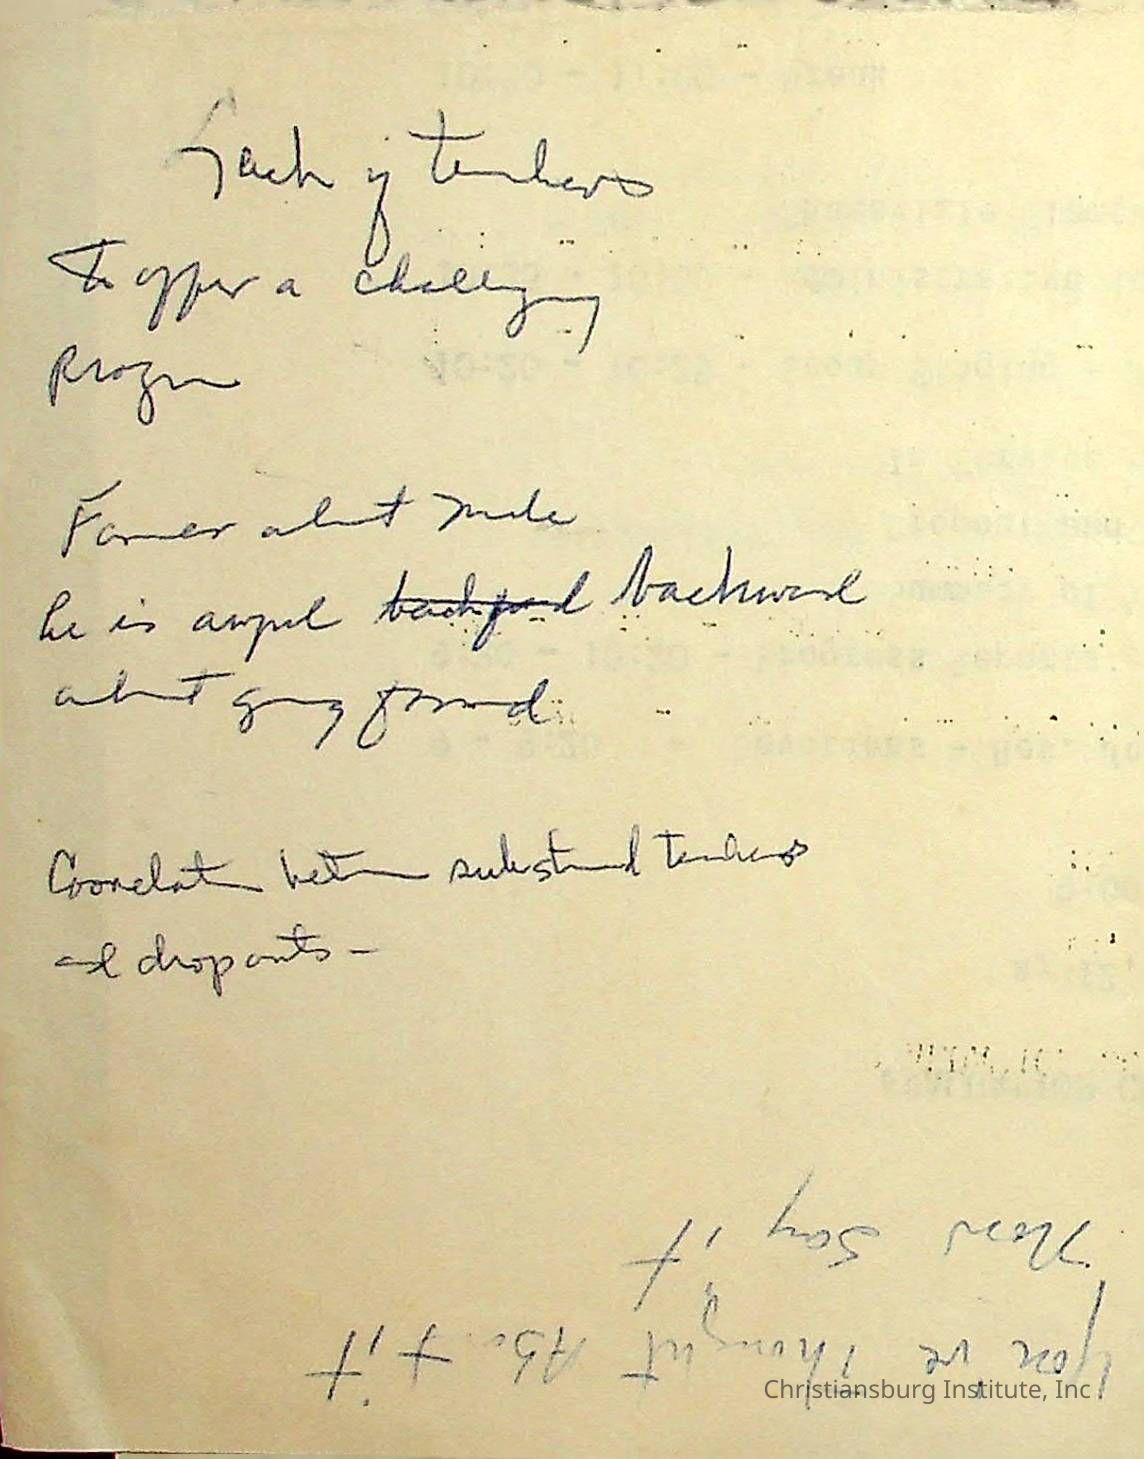 Lack of teachers
To offer a challenging
Program
Former about
he is awful backward backward
about going forward
Correlation between substand teachers
and dropouts -
You've Thought About it
Now say it
Christiansburg Institute, Inc